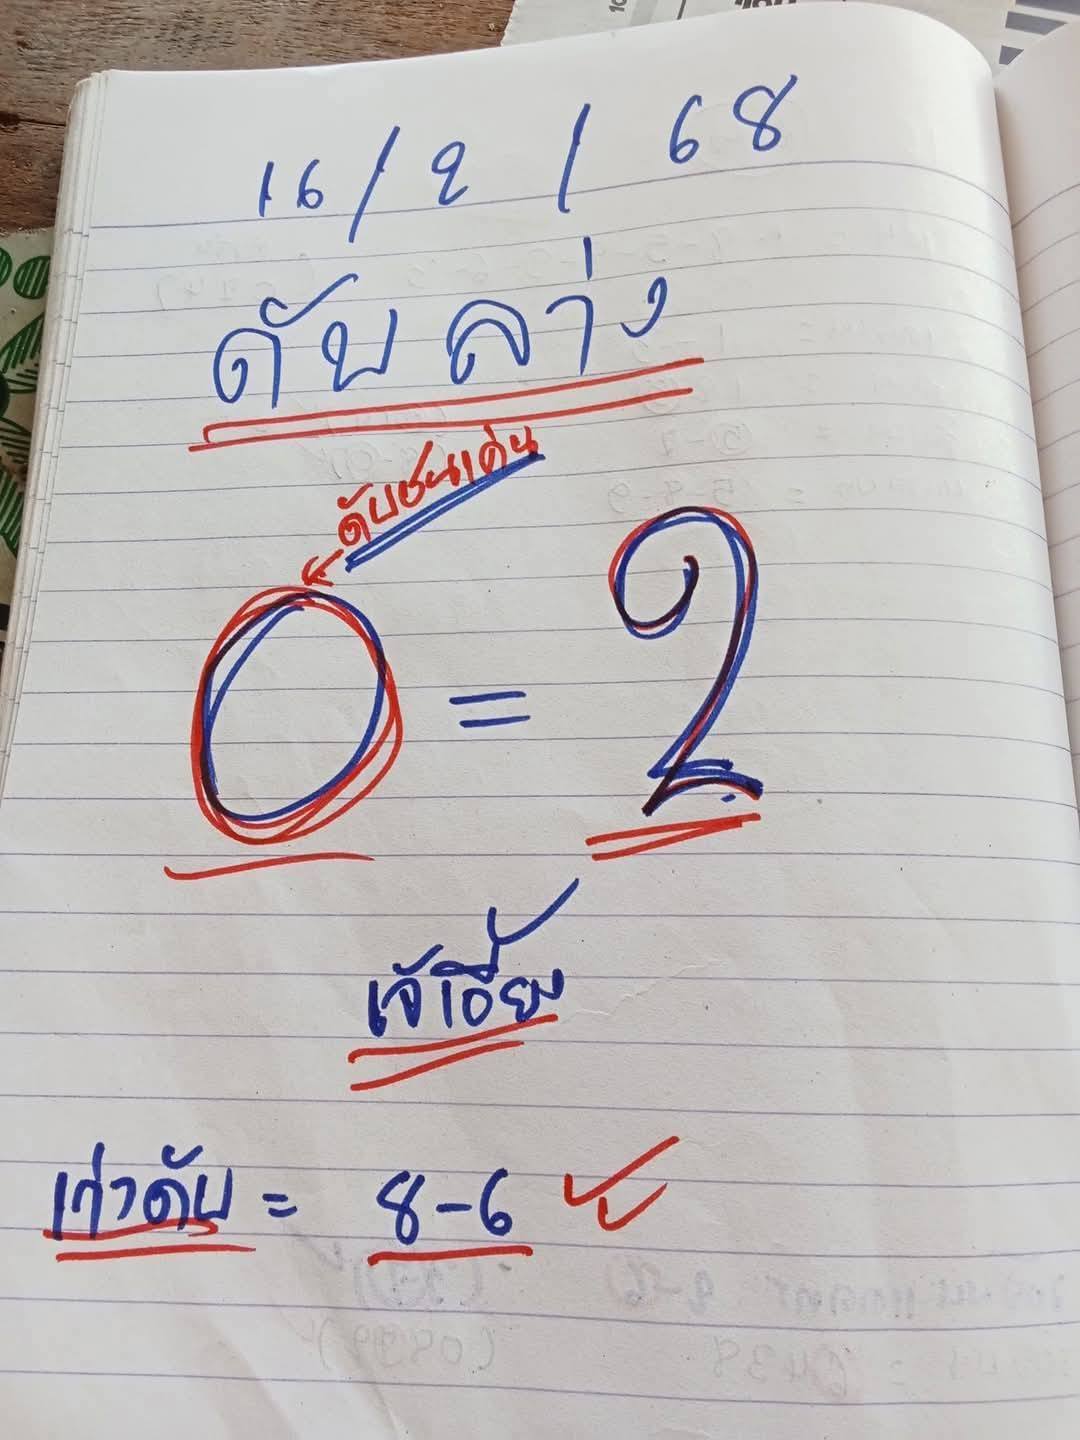 16/2/68
ดับล่าง
ดับชนเด่น
0 = 2
เจ๊เอี้ยง
เก่าดับ = 8-6